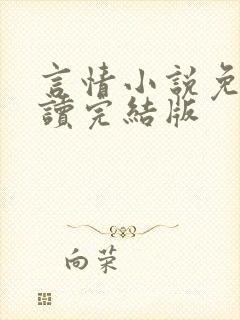 言情小說免
讀完結版
向荣